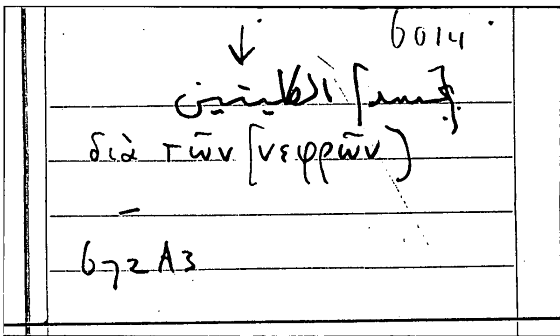 6014
الكليتين
διὰ τῶν [νεφρῶν)
672 A3